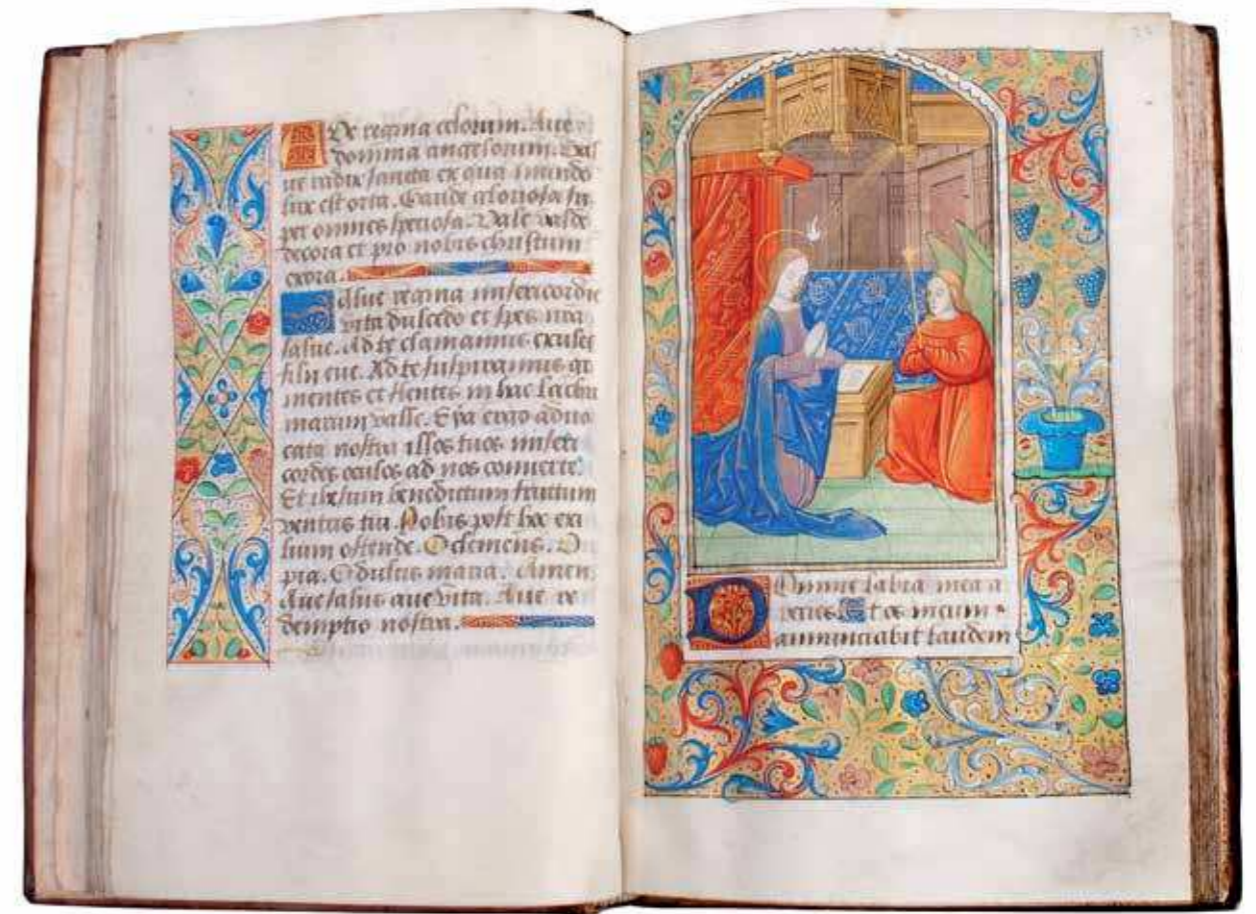 AVe regina celorum. Aue
domina angelorum. Sal
ue radix sancta ex qua mundo
lux est orta. Gaude gloriosa su
per omnes speciosa. Vale valde
decora et pro nobis christum
exora.
Salue regina misericordie
vita dulcedo et spes nra
salue. Ad te clamamus exules
filii eue. Ad te suspiramus ge
mentes et flentes in hac lachri
marum valle. Eya ergo aduo
cata nostra illos tuos miseri
cordes oculos ad nos conuerte.
Et ihesum benedictum fructum
ventris tui. Nobis post hoc exi
lium ostende. O clemens. O
pia. O dulcis maria. Amen.
Aue salus aue vita. Aue re
demptio nostra.
DOmine labia mea a
peries. Et os meum
annunciabit laudem